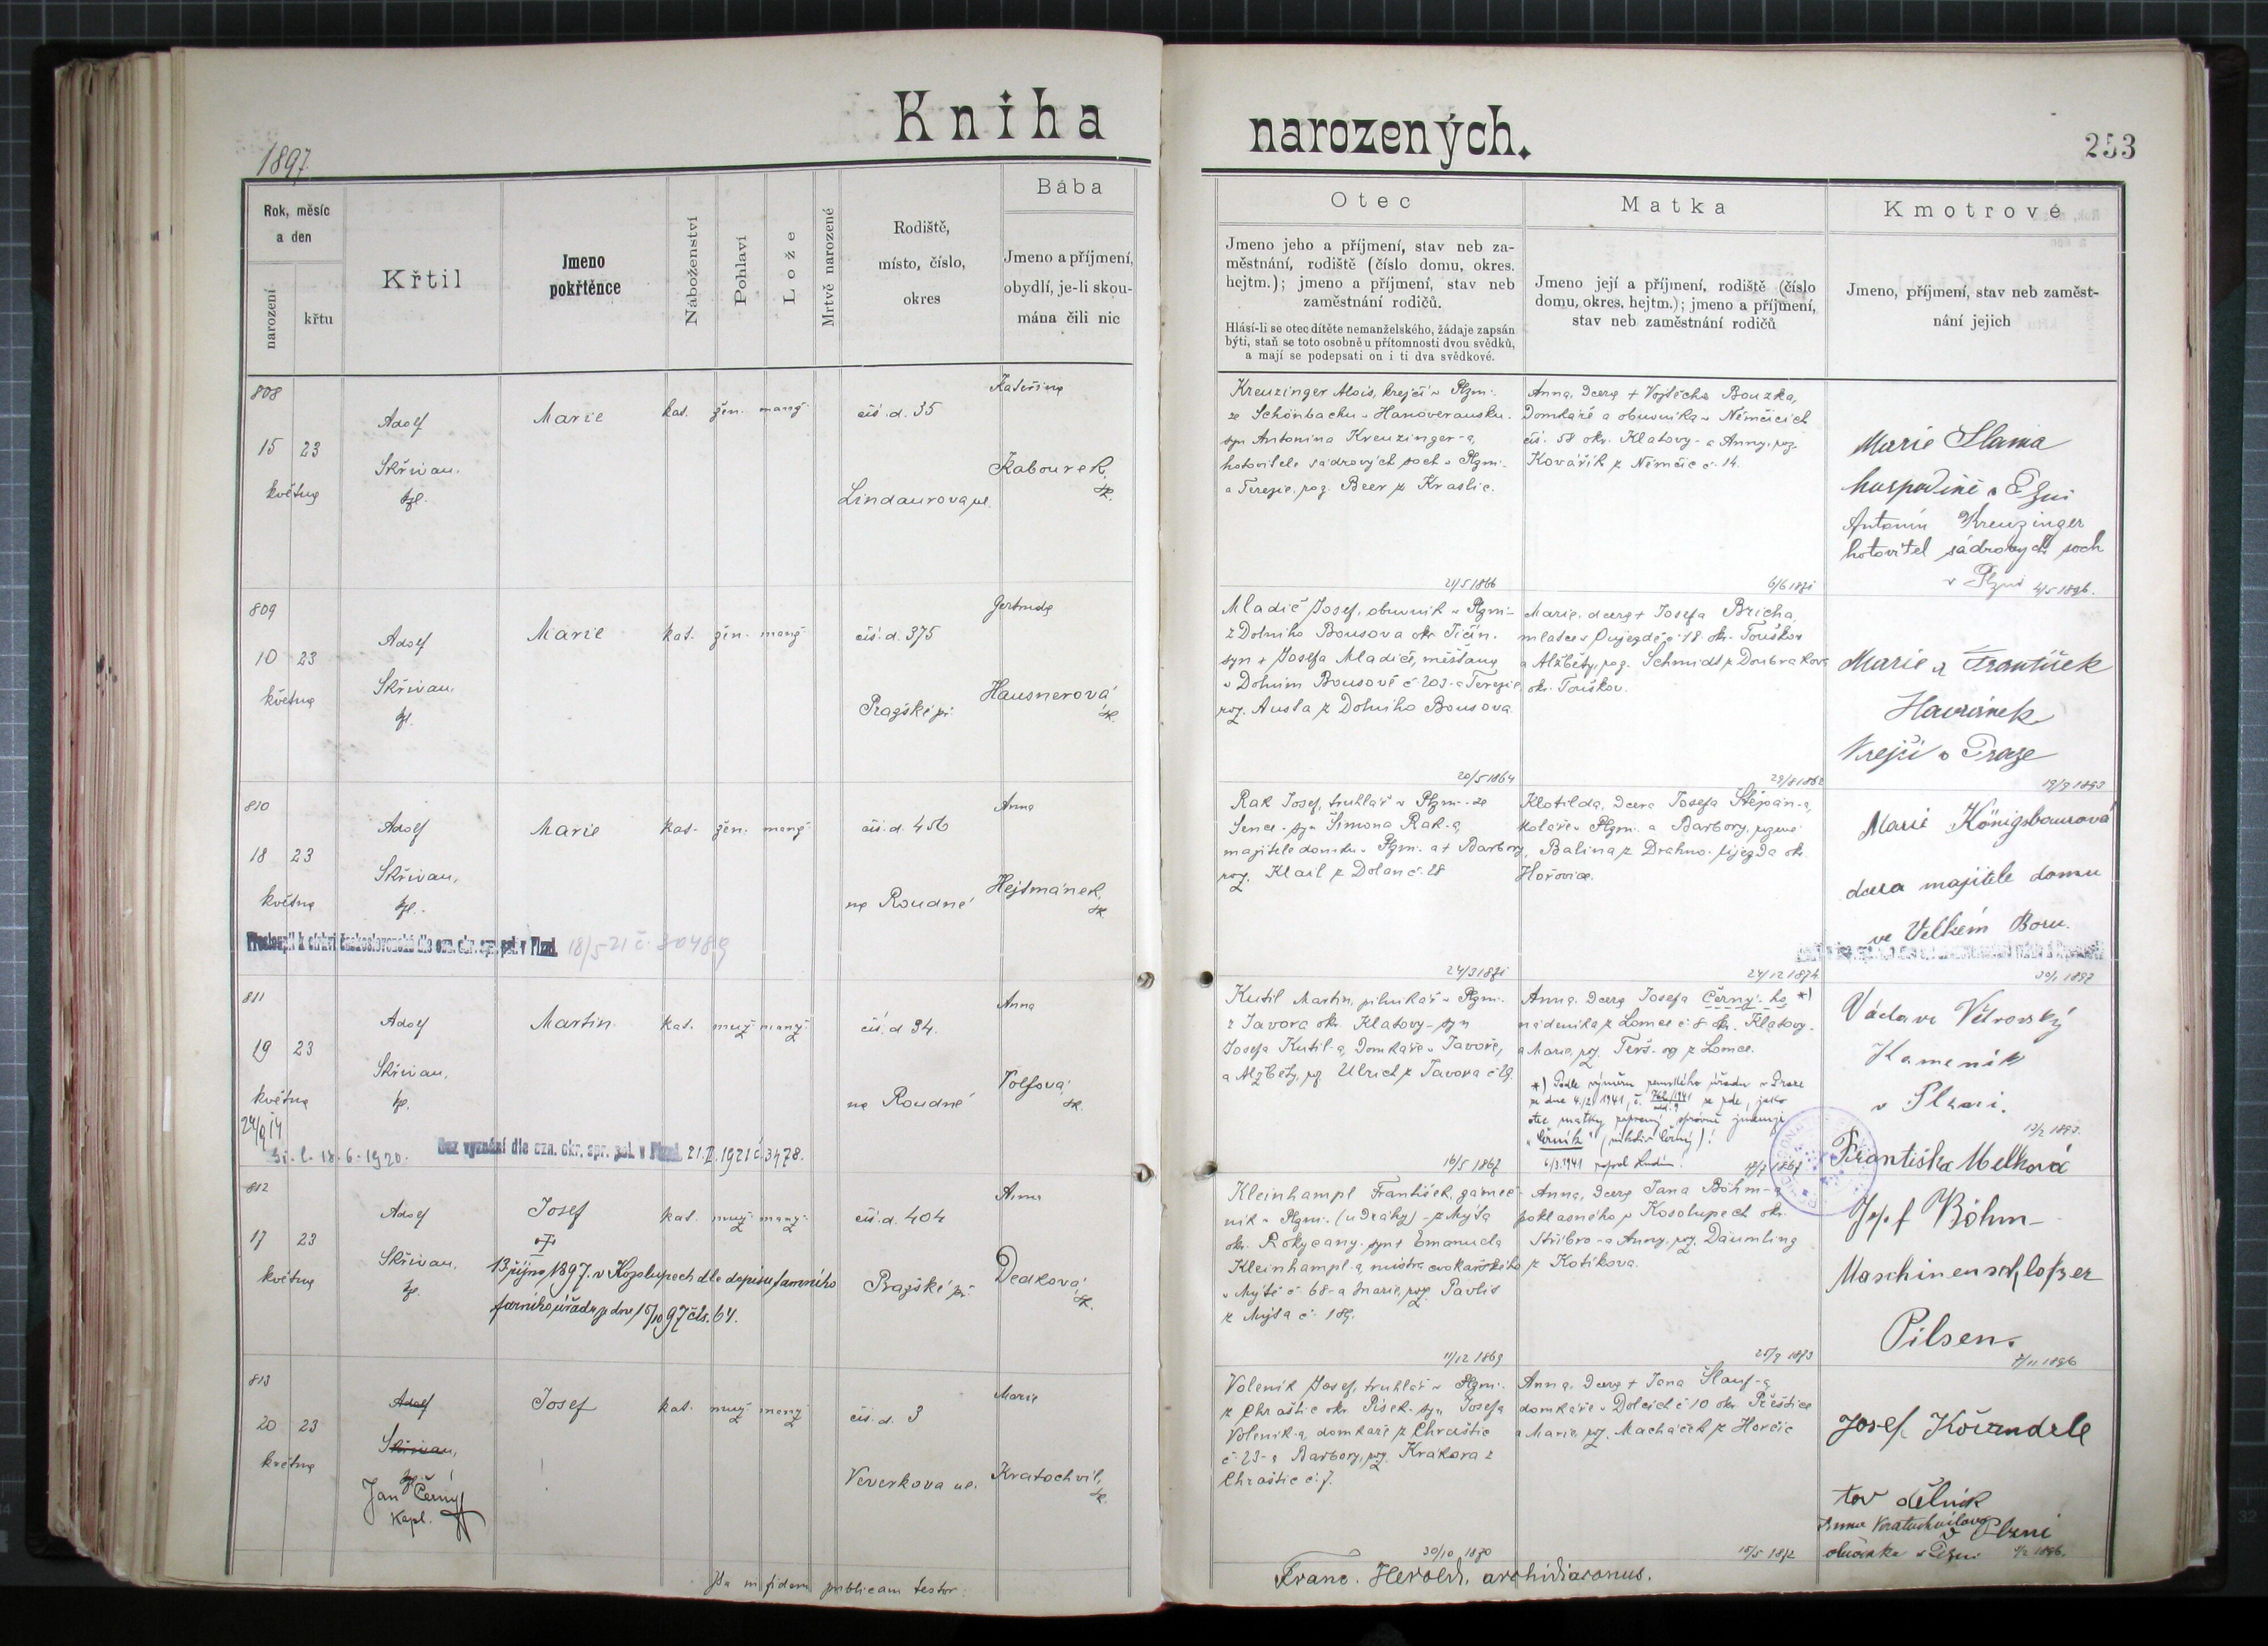 Kniha
narozených.
1897.
253
Rok, měsíc
a den
narození
křtu
Křtil
Jmeno
pokřtěnce
Náboženství
Pohlaví
Lože
Mrtvě narozené
Rodiště,
místo, číslo,
okres
Bába
Jmeno a příjmení,
obydlí, je-li skou-
mána čili nic
Otec
Jmeno jeho a příjmení, stav neb za-
městnání, rodiště (číslo domu, okres.
hejtm.); jmeno a příjmení, stav neb
zaměstnání rodičů.
Hlásí-li se otec dítěte nemanželského, žádaje zapsán
býti, staň se toto osobně u přítomnosti dvou svědků,
a mají se podepsati on i ti dva svědkové.
Matka
Jmeno její a příjmení, rodiště (číslo
domu, okres. hejtm.); jmeno a příjmení,
stav neb zaměstnání rodičů
Kmotrové
Jmeno, příjmení, stav neb zaměst-
nání jejich
808
15 23
května
Adolf
Skřivan,
kpl.
Marie
kat. žen. manž.
čís. d. 35
Lindaurova ul.
Kateřina
Kabourek,
zk.
Kreuzinger Alois, krejčí v Plzni-
ze Schönbachu v Hanoveransku.
syn Antonína Kreuzinger-a,
hotovitele sádrových soch v Plzni-
a Terezie, roz. Beer z Kraslic.
21/5 1866
Anna, dcera + Vojtěcha Bouzka,
domkáře a obuvníka v Němčicích
čís. 58 okr. Klatovy- a Anny, roz.
Kovářík z Němčic č. 14.
6/6 1871
Marie Slama
hospodině v Plzni
Antonín Kreuzinger
hotovitel sádrových soch
v Plzni 4/5 1896.
809
10 23
května
Adolf
Skřivan,
kpl.
Marie
kat. žen. manž.
čís. d. 375
Pražské př.
Gertruda
Hausnerová
zk.
Mladič Josef, obuvník v Plzni-
z Dolního Bousova okr. Jičín.
syn + Josefa Mladiče, měšťana
v Dolním Bousově č. 203-a Terezie,
roz. Austa z Dolního Bousova
20/5 1864
Marie, dcera + Josefa Bricha,
mlatce v Pujezdě č. 18. okr. Touškov
a Alžběty, roz. Schmidt z Doubrakova
okr. Touškov.
29/8 1862
Marie a František
Havránek
krejčí v Praze
19/9 1893
810
18 23
května
Adolf
Skřivan,
kpl.
Marie
kat. žen. manž.
čís. d. 456
na Roudné
Anna
Hejtmánek,
zk.
Přestoupil k církvi československé dle ozn. okr. spr. pol. v Plzni. 18/5 21 č. 30489
Rak Josef, truhlář v Plzni-ze
Sence-syn Šimona Rak-a,
majitele domu v Plzni- a + Barbory,
roz. Klail z Dolan č. 28
24/3 1871
Klotilda, dcera Josefa Štěpán-a,
koláře v Plzni- a Barbory, rozené
Balina z Drahno-újezda okr.
Hořovice.
24/12 1874
Marie Königsbaurová
dcera majitele domu
ve Velkém Boru.
30/1 1897
811
19 23
května
24/9 14
Adolf
Skřivan,
kpl.
Martin
kat. muž. manž.
čís. d 34.
na Roudné
Anna
Volfová,
zk.
18. 6. 1920.
Bez vyznání dle ozn. okr. spr. pol. v Plzni 21.II.1921 č. 3478.
Kutil Martin, pilníkář v Plzni-
z Javora okr. Klatovy-syn
Josefa Kutil-a, domkáře v Javoře,
a Alžběty, roz. Ulrich z Javora č. 29.
16/5 1867
Anna, dcera Josefa Černý-ho *)
nádeníka z Lomce č. 8 okr. Klatovy-
a Marie, roz. Terš-og z Lomce.
*) Podle výměru zemského úřadu v Praze
ze dne 4./2. 1941, č. se zde, jako
otec matky zapsaný správně jmenuje
„Černík" (nikoliv Černý)!
6/3. 1941
Václav Větrovský
Kameník
v Plzni.
13/2 1893.
812
17 23
května
Adolf
Skřivan,
kpl.
Josef
13 října 1897. v Kozolupech dle dopisu farního
farního úřadu z dne 15/10 97 čís. 64.
kat. muž. manž.
čís. d. 404
Pražské př.
Anna
Dedková,
zk.
Kleinhampl František, zámeč-
ník v Plzni. (u Dráhy)-z Mýta
okr. Rokycany-syn + Emanuela
Kleinhampl-a, mistra cvokařského
v Mýtě č. 68-a Marie, roz. Pavlis
z Mýta č. 189.
11/12 1869
Anna, dcera Jana Böhm-a
poklasného v Kosolupech okr.
Stříbro-a Anny, roz. Däumling
z Kotíkova.
25/9 1873
Františka Melková
Josef Böhm-
Maschinenschloßer
Pilsen.
7/11 1896
813
20 23
května
Adolf
Skřivan,
kpl.
Jan Černý
Kapl.
Josef
kat. muž. manž.
čís. d. 3
Veverkova ul.
Marie
Kratochvíl,
zk.
Voleník Josef, truhlář v Plzni-
z Chraštic okr. Písek-syn Josefa
Voleník-a, domkáře z Chraštic
č. 23-a Barbory, roz. Krákora z
Chraštic č. 7.
30/10 1870
Anna, dcera + Jana Šlauf-a,
domkáře v Dolcích č. 10 okr. Přeštice
a Marie, roz. Macháček z Horčic
15/5 1872
Josef Kořandrle
tov dělník
v Plzni
Anna Kratochvílova
v Plzni 9/2 1896.
Ita in fidem publicam testor:
Franc. Herold, archidiaconus.